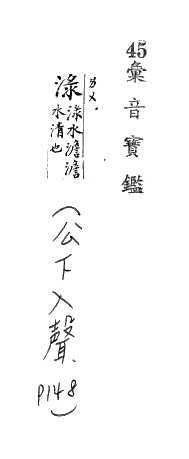 45彙音寶鑑
ㄌㄨˋ
淥 淥水澹澹
水清也
(公下入聲、P148)